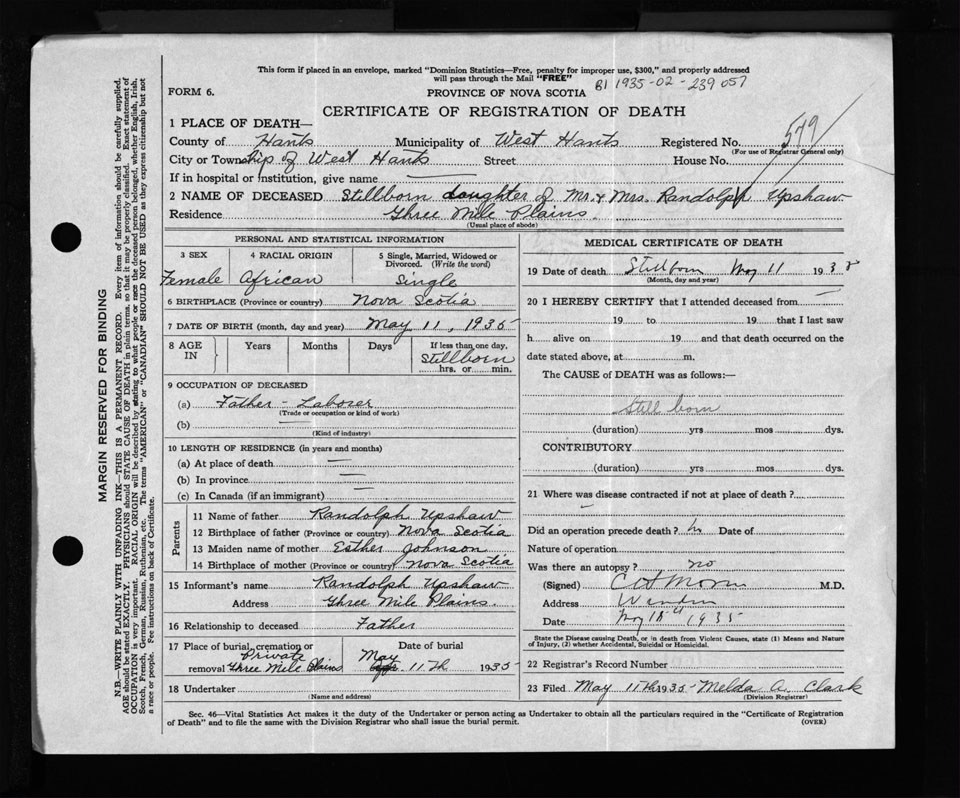 This form if placed in an envelope, marked "Dominion Statistics—Free, penalty for improper use, $300," and properly addressed
will pass through the Mail "FREE"
B1 1935-02-239057
FORM 6.
PROVINCE OF NOVA SCOTIA
CERTIFICATE OF REGISTRATION OF DEATH
1 PLACE OF DEATH—
County of Hants Municipality of West Hants Registered No. 579
(For use of Registrar General only)
City or Township of West Hants Street House No.
If in hospital or institution, give name —
2 NAME OF DECEASED Stillborn daughter of Mr. & Mrs. Randolph Upshaw
Residence Three Mile Plains.
(Usual place of abode)
PERSONAL AND STATISTICAL INFORMATION
3 SEX 4 RACIAL ORIGIN 5 Single, Married, Widowed or
Divorced. (Write the word)
Female African Single
6 BIRTHPLACE (Province or country) Nova Scotia
7 DATE OF BIRTH (month, day and year) May 11, 1935
8 AGE IN Years Months Days If less than one day,
Stillborn
hrs. or min.
9 OCCUPATION OF DECEASED
(a) Father - Laborer
(Trade or occupation or kind of work)
(b) —
(Kind of industry)
10 LENGTH OF RESIDENCE (in years and months)
(a) At place of death —
(b) In province —
(c) In Canada (if an immigrant) —
Parents
11 Name of father Randolph Upshaw
12 Birthplace of father (Province or country) Nova Scotia
13 Maiden name of mother Esther Johnson
14 Birthplace of mother (Province or country) Nova Scotia
15 Informant's name Randolph Upshaw
Address Three Mile Plains.
16 Relationship to deceased Father
17 Place of burial, cremation or Date of burial
Private May
removal Three Mile Plains 11Th 1935
18 Undertaker
(Name and address)
MEDICAL CERTIFICATE OF DEATH
19 Date of death Stillborn May 11 193
(Month, day and year)
20 I HEREBY CERTIFY that I attended deceased from —
19 to 19 that I last saw
h alive on 19 and that death occurred on the
date stated above, at m.
The CAUSE of DEATH was as follows:—
Still born
(duration) yrs mos dys.
CONTRIBUTORY
(duration) yrs mos dys.
21 Where was disease contracted if not at place of death?
—
Did an operation precede death? Date of
Nature of operation
Was there an autopsy? no
(Signed) M.D.
Address
Date 1935
State the Disease causing Death, or in death from Violent Causes, state (1) Means and Nature
of Injury, (2) whether Accidental, Suicidal or Homicidal.
22 Registrar's Record Number
23 Filed May 11Th 1935- Melda A. Clark
(Division Registrar)
Sec. 46—Vital Statistics Act makes it the duty of the Undertaker or person acting as Undertaker to obtain all the particulars required in the "Certificate of Registration
of Death" and to file the same with the Division Registrar who shall issue the burial permit. (OVER)
MARGIN RESERVED FOR BINDING
N.B.—WRITE PLAINLY WITH UNFADING INK—THIS IS A PERMANENT RECORD. Every item of information should be carefully supplied.
AGE should be stated EXACTLY. PHYSICIANS should STATE CAUSE OF DEATH in plain terms, so that it may be properly classified. Exact statement of
OCCUPATION is very important. RACIAL ORIGIN will be described by stating to what people or race the deceased person belonged, whether English, Irish,
Scotch, French, German, Russian, Ruthenian, etc. The terms "AMERICAN" or "CANADIAN" SHOULD NOT BE USED as they express citizenship but not
a race or people. See instructions on back of Certificate.